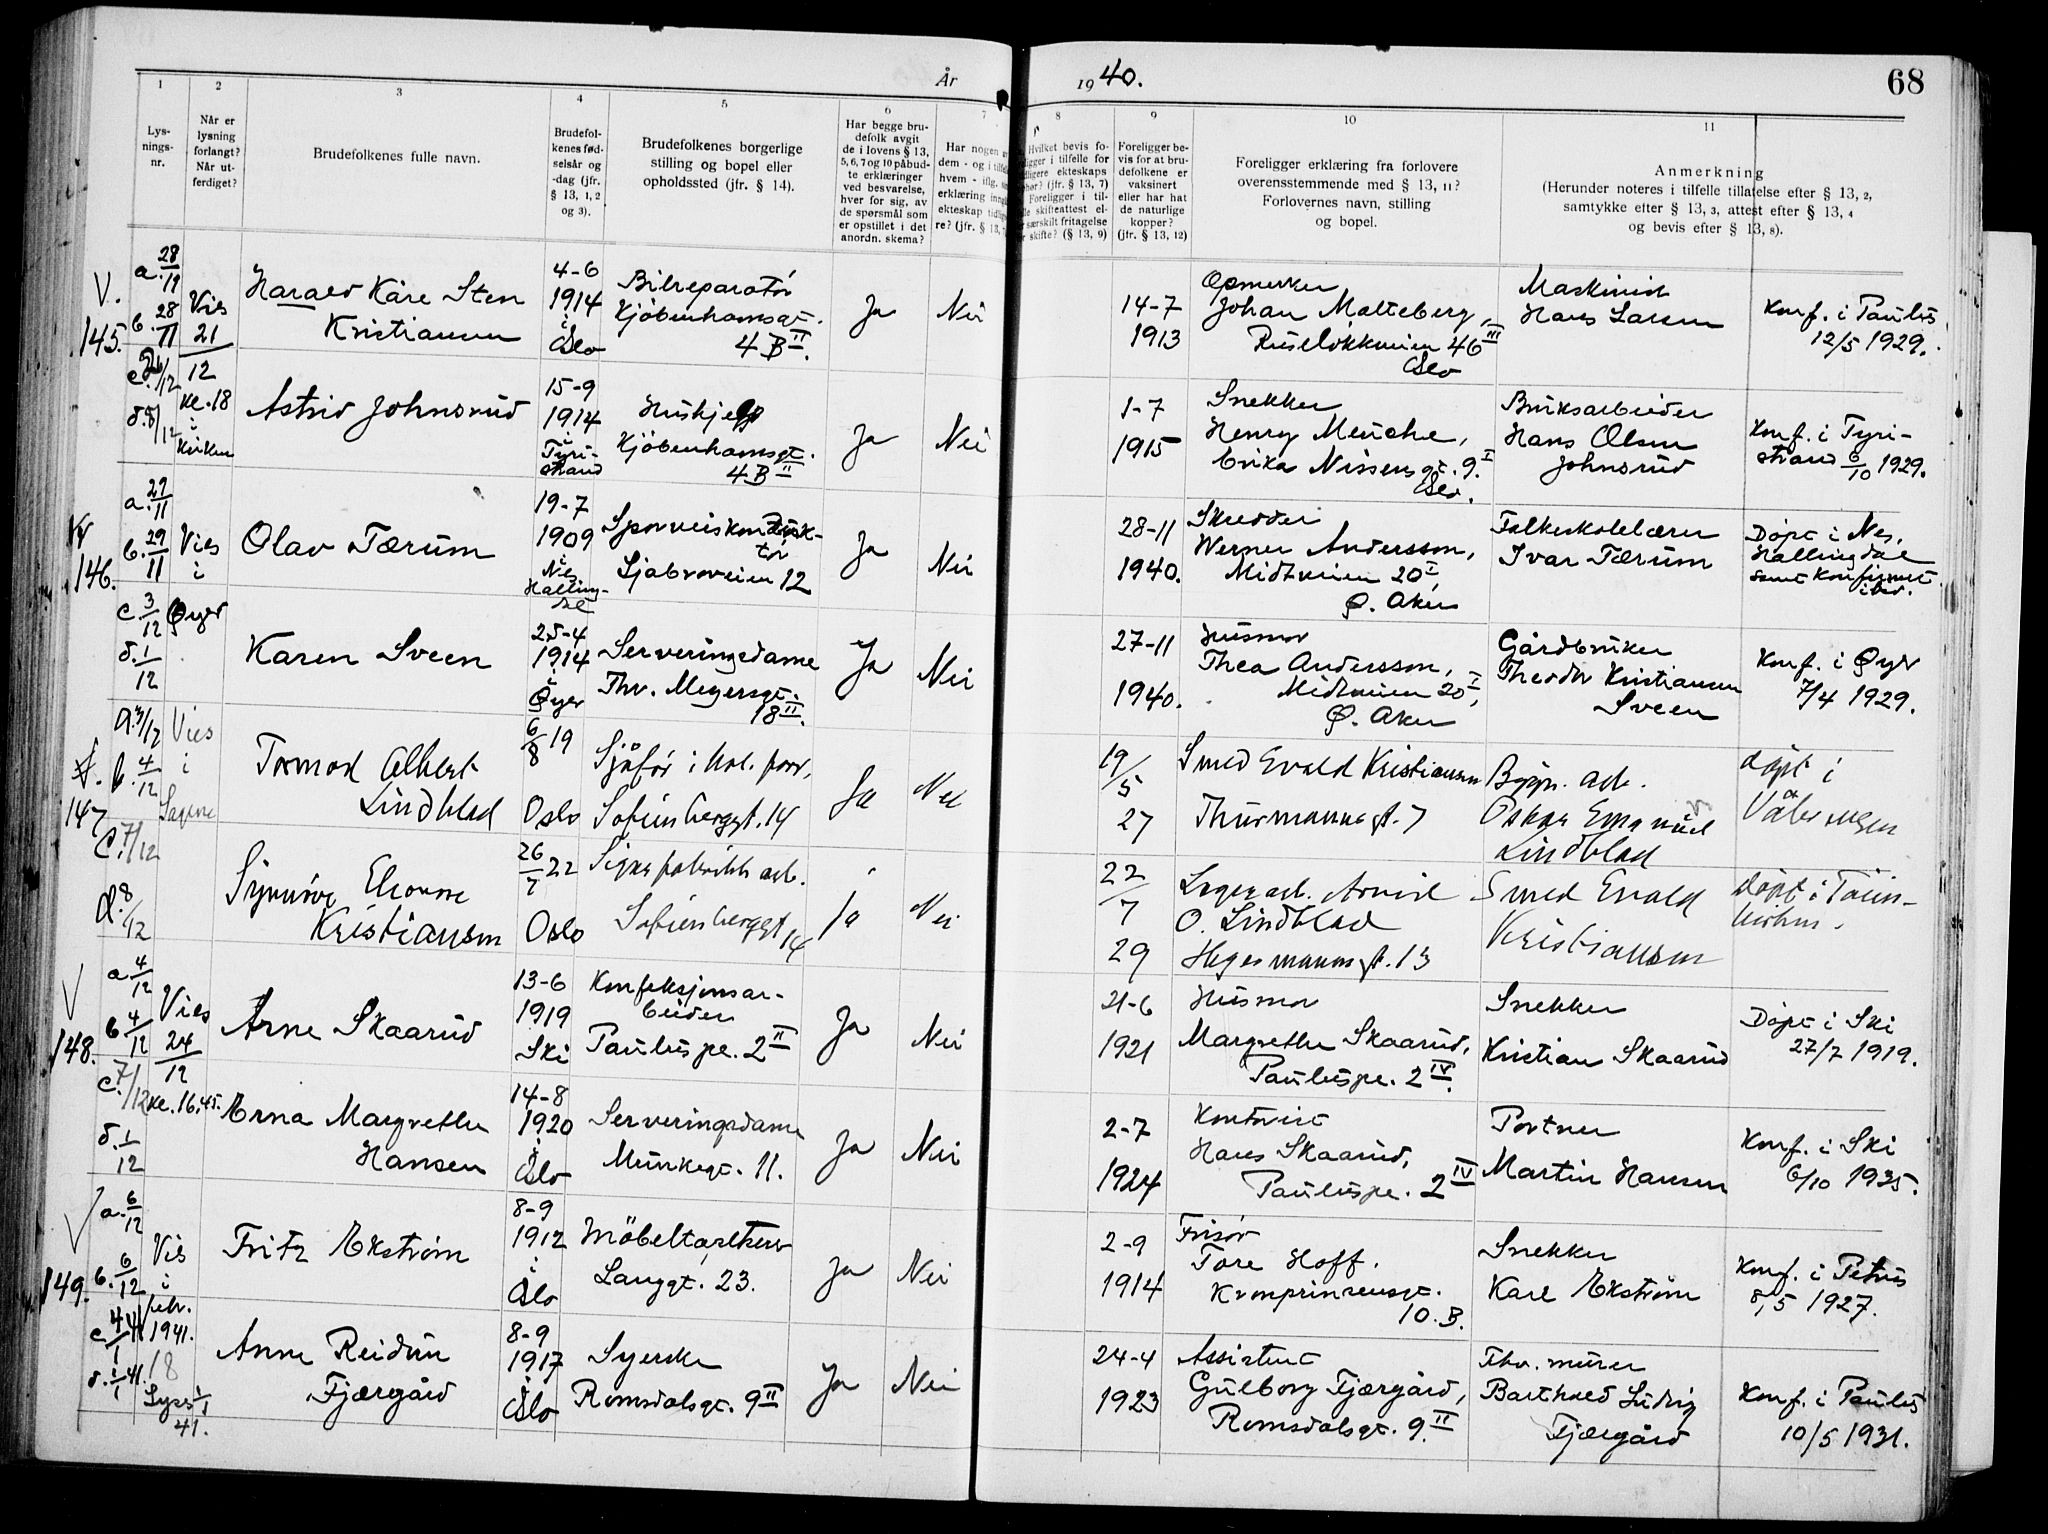 År 1940.
68
1
2
3
4
5
6
7
8
9
10
11
Lys-
nings-
nr.
Når er
lysning
forlangt?
Når ut-
ferdiget?
Brudefolkenes fulle navn.
Brudefol-
kenes fød-
selsår og
-dag (jfr.
§ 13, 1, 2
og 3).
Brudefolkenes borgerlige
stilling og bopel eller
opholdssted (jfr. § 14).
Har begge bru-
defolk avgit
de i lovens § 13,
5, 6, 7 og 10 påbud-
te erklæringer
ved besvarelse,
hver for sig, av
de spørsmål som
er opstillet i det
anordn. skema?
Har nogen
dem - og i
hvem - iflg.
erklæring
ekteskap
re? (jfr. § 13,
Hvilket bevis fo-
ligger i tilfelle for
ekteskaps
(jfr. § 13, 7)
Foreligger i til-
skifteattest el-
særskilt fritagelse
skifte? (§ 13, 9)
Foreligger be-
vis for at bru-
defolkene er
vaksinert
eller har hat
de naturlige
kopper?
(jfr. § 13, 12)
Foreligger erklæring fra forlovere
overensstemmende med § 13, 11?
Forlovernes navn, stilling
og bopel.
Anmerkning
(Herunder noteres i tilfelle tillatelse efter § 13, 2,
samtykke efter § 13, 3, attest efter § 13, 4
og bevis efter § 13, 8).
V.
145.
a. 28/11
b. 28/11
d. 8/12
Vies
21/12
kl. 18
i
kirken
Harald Kåre Sten
Kristiansen
4-6
1914
i
Oslo
Bilreparatør
Kjøbenhamsgt.
4 B II.
Ja
Nei
14-7
1913
Opmerker
Johan Malteberg,
Ruseløkkveien 46 III
Oslo
Maskinist
Hans Larsen
Konf. i Paulus
12/5 1929.
Astrid Johnsrud
15-9
1914
i
Tyri-
strand
Hushjelp
Kjøbenhamsgt.
4 B II
Ja
Nei
1-7
1915
Snekker
Henry Menche,
Erika Nissensgt. 9. I
Oslo.
Bruksarbeider
Hans Olsen
Johnsrud
Konf. i Tyri-
strand 6/10 1929.
146.
a. 29/11
b. 29/11
c. 3/12
d. 1/12
Vies
i
Øyer
Olav Tærum
19-7
1909
i
Nes
Halling-
dal
Sporveiskonduk-
tør
Ljabruveien 12
Ja
Nei
28-11
1940.
Skredder
Werner Andersson,
Midtveien 20 I
Ø. Aker
Folkeskolelærer
Ivar Tærum
Døpt i Nes,
Hallingdal
samt konfirmert
ibid.
Karen Sveen
25-4
1914
i
Øyer
Serveringsdame
Thv. Meyersgt.
18 II.
Ja
Nei
27-11
1940.
Husmor
Thea Andersson,
Midtveien 20 I,
Ø. Aker
Gårdbruker
Theodor Kristiansen
Sveen
Konf. i Øyer
7/4 1929.
147
a. 3/12
b. 4/12
c. 7/12
d. 8/12
Vies
i
Sagene
Tormod Albert
Lindblad
6/8 19
Oslo
Sjåfør i kol. forr.
Sofienberggt. 14
Ja
Nei
19/5
27
Smed Evald Kristiansen
Thurmannsgt. 7
Bygn. arb.
Oskar Emanuel
Lindblad
døpt i
Vålerengen
Synnøve Eleonore
Kristiansen
26/7 22
Oslo
Sigarfabrikk arb.
Sofienberggt 14
Ja
Nei
22/7
29
Lagerarb. Arvid
O. Lindblad
Hegermannsgt. 13
Smed Evald
Kristiansen
Døpt i Tøien-
kirken.
148.
a 4/12
b 4/12
c. 7/12
d. 1/12
Vies
24/12
kl. 16,45.
Arne Skaarud
13-6
1919
Ski
Konfeksjonsar-
beider
Pauluspl. 2 II
Ja
Nei
21-6
1921
Husmor
Margrethe Skaarud,
Pauluspl. 2 IV.
Snekker
Kristian Skaarud
Døpt i Ski
27/7 1919.
Erna Margrethe
Hansen
14-8
1920
i
Oslo
Serveringsdame
Munkegt. 11.
Ja
Nei
2-7
1924
Kontorist
Hans Skaarud,
Pauluspl. 2 IV
Portner
Martin Hansen
Konf. i Ski
6/10 1935.
149.
a. 6/12
b. 6/12
c 4/1 41
d. 1/1 41.
Vies
i
febr.
1941.
18
Lyst 1/1
41.
Fritz Ekstrøm
8-9
1912
i
Oslo
Möbeltapetserer
Langgt. 23.
Ja
Nei
2-9
1914
Frisør
Tore Hoff.
Kronprinsensgt.
10. B.
Snekker
Karl Ekstrøm
Konf. i Petrus
8/5 1927.
Anne Reidun
Fjærgård
8-9
1917
i
Oslo
Syerske
Romsdalsgt. 9 II
Ja
Nei
24-4
1923
Assistent
Gulborg Fjærgård,
Romsdalsgt. 9. II
Fhv. murer
Barthold Ludvig
Fjærgård
Konf. i Paulus
10/5 1931.